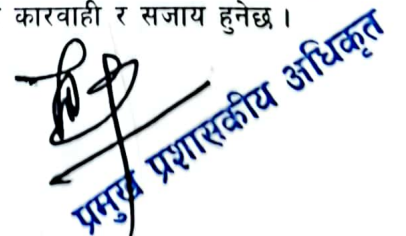 कारवाही र सजाय हुनेछ ।
प्रमुख प्रशासकीय अधिकृत